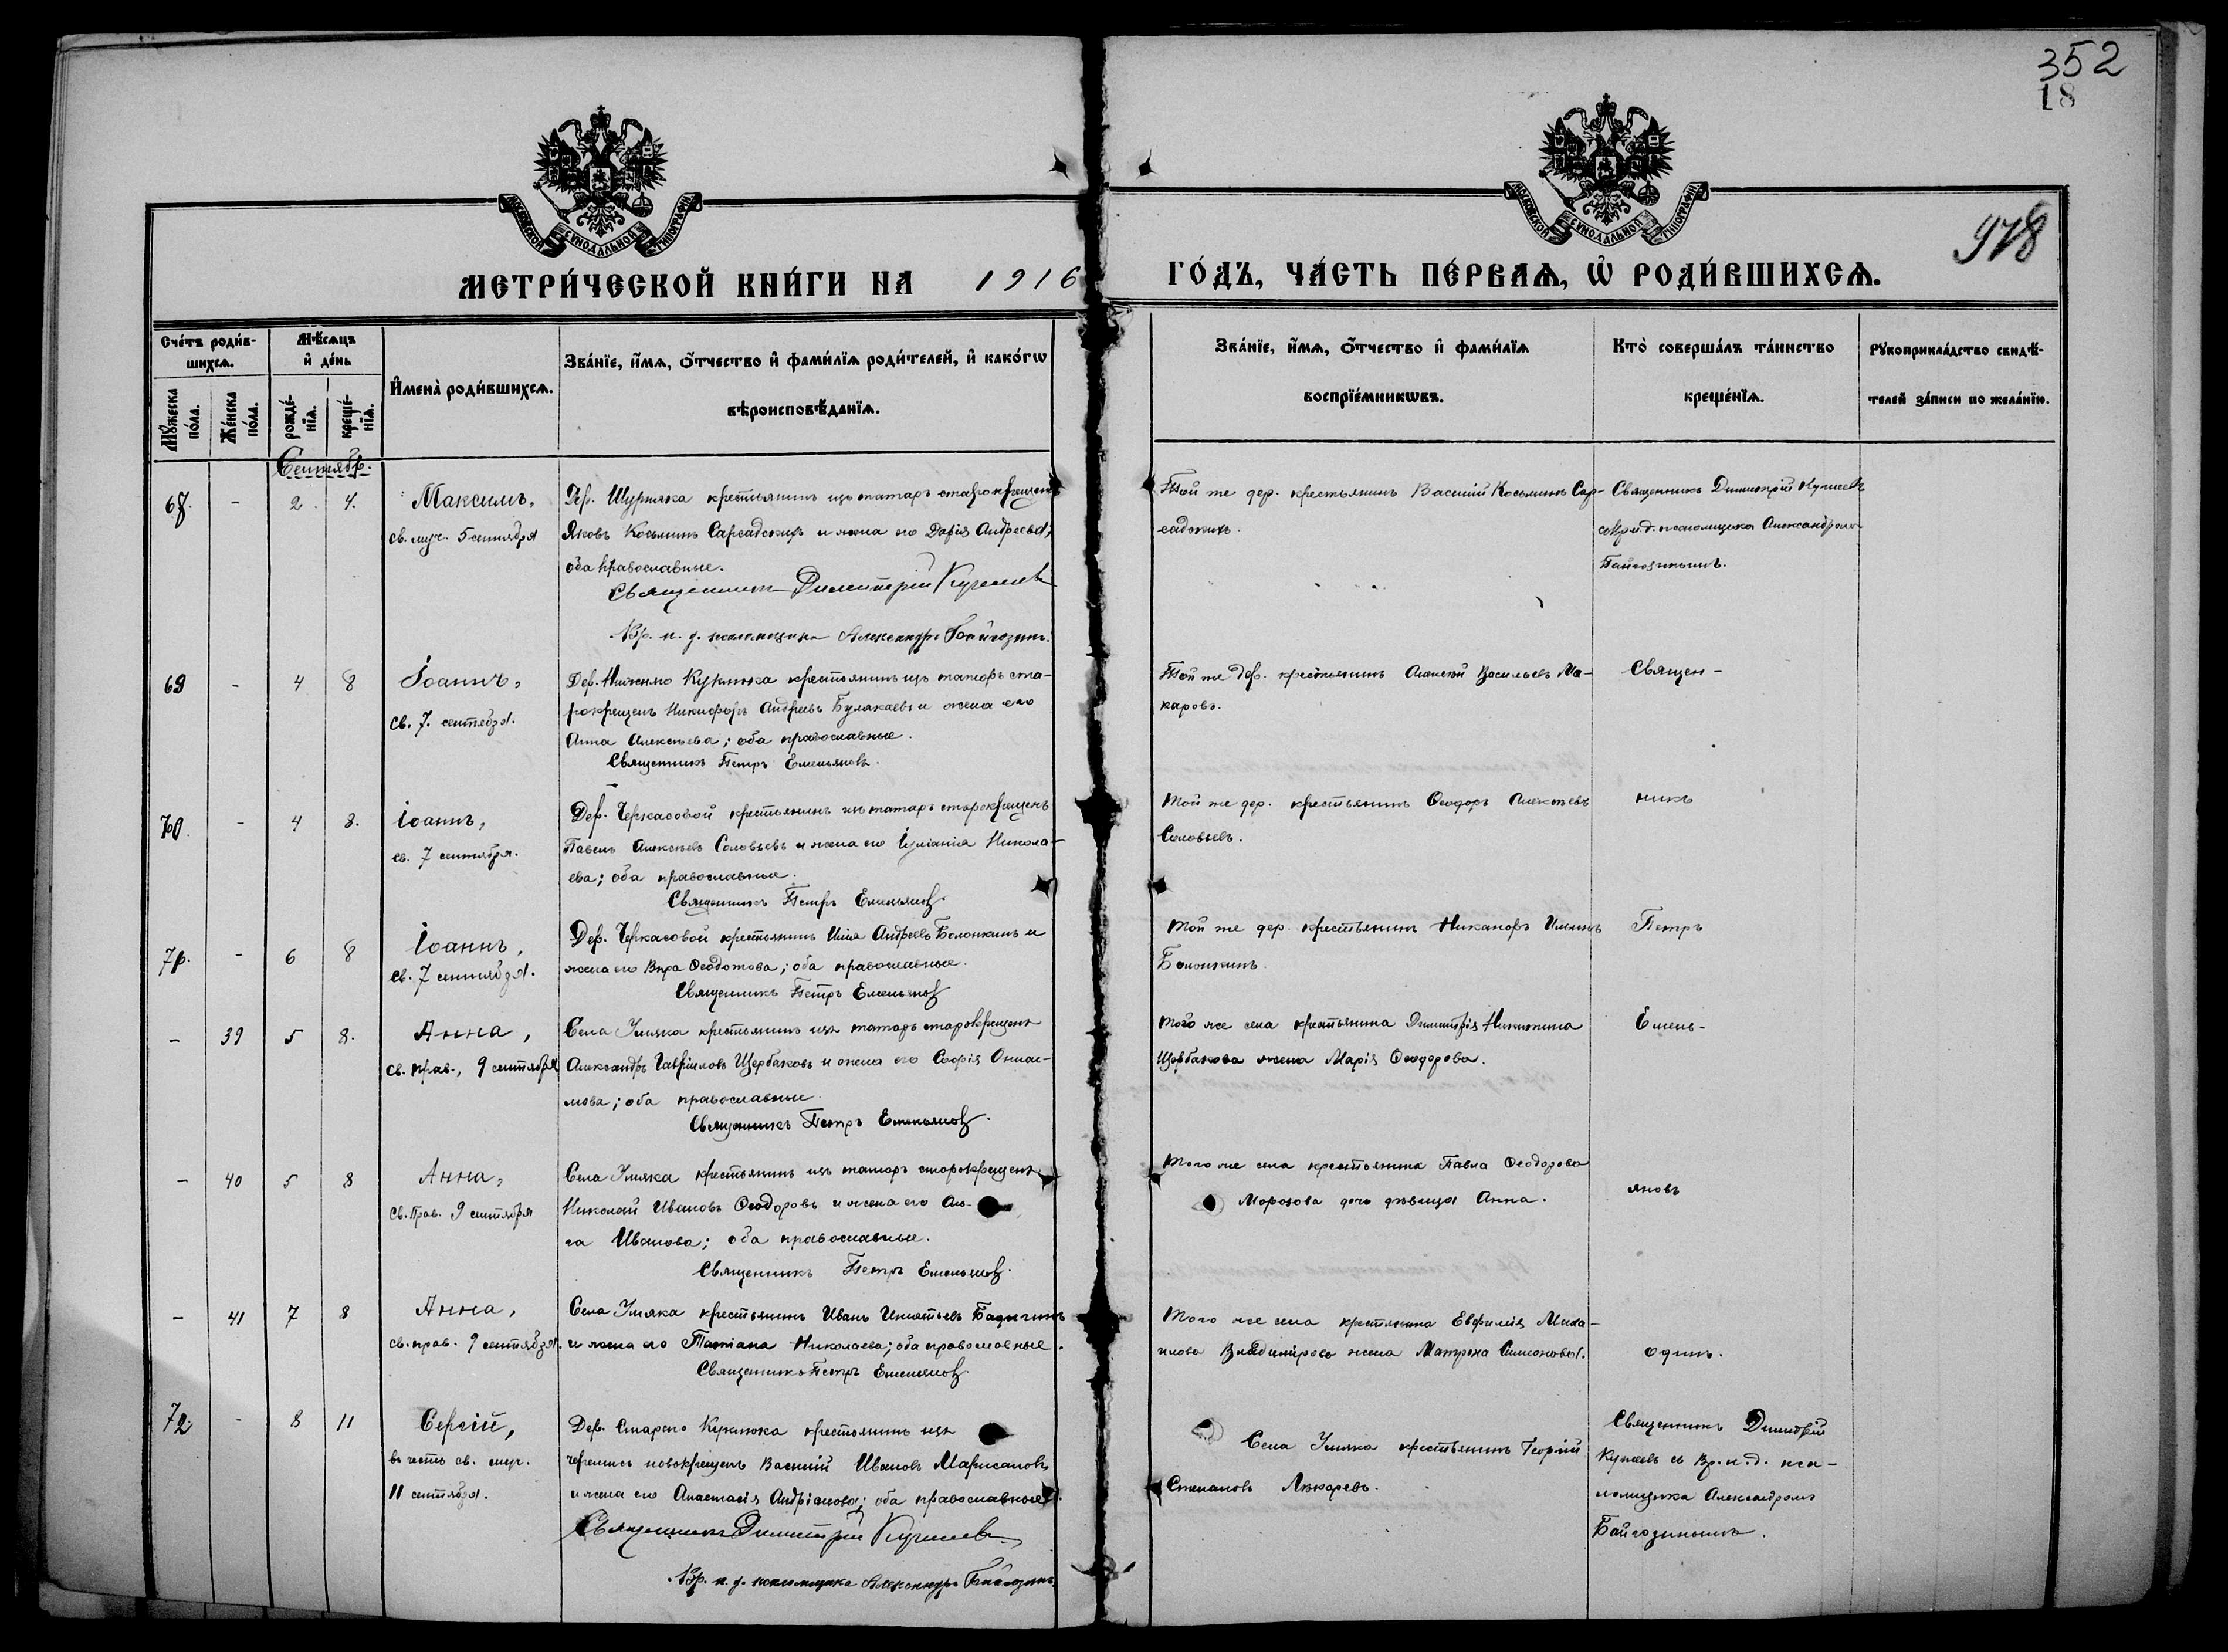 352
18
МОСКОВСКОЙ СѴНОДАЛЬНОЙ ТИПОГРАФІИ
МОСКОВСКОЙ СѴНОДАЛЬНОЙ ТИПОГРАФІИ
978
МЕТРИ́ЧЕСКОЙ КНИ́ГИ НА 1916
ГО́ДЪ, ЧА́СТЬ ПЕ́РВАѦ, Ѡ҆ РОДИ́ВШИХСѦ.
Сче́тъ роди́в-
шихсѧ.
Мѣ́сѧцъ
и҆ де́нь
Мꙋ́жеска
по́ла.
Же́нска
по́ла.
рожде́-
нїѧ.
креще́-
нїѧ.
И҆мена̀ роди́вшихсѧ.
Зва́нїе, и҆́мѧ, ѻ҆́тчество и҆ фами́лїѧ роди́телей, и҆ како́гѡ
вѣроисповѣ́данїѧ.
Зва́нїе, и҆́мѧ, ѻ҆́тчество и҆ фами́лїѧ
воспрїе́мникѡвъ.
Кто̀ соверша́лъ та́инство
креще́нїѧ.
Рꙋкоприкла́дство свидѣ́-
телей за́писи по жела́нїю.
Сентябр.
68. - 2. 4. Максимъ,
св. муч. 5 сентября
Дер. Шурняка крестьянинъ изъ татаръ старокрещенъ
Яковъ Косьминъ Сарсадскихъ и жена его Дарія Андреева;
оба православные.
Священникъ Димитрій Кучеевъ
Вр. и. д. псаломщика Александръ Байгозинъ.
Той же дер. крестьянинъ Василій Косьминъ Сар-
садскихъ.
Священникъ Димитрій Кучеевъ
съ Вр. и. д. псаломщика Александромъ
Байгозинымъ.
69 - 4 8 Іоаннъ,
св. 7. сентября.
Дер. Нижняго Куклюка крестьянинъ изъ татаръ ста-
рокрещенъ Никифоръ Андреевъ Булакаевъ и жена его
Анна Алексѣева; оба православные.
Священникъ Петръ Емельяновъ.
Той же дер. крестьянинъ Алексѣй Васильевъ Ма-
каровъ.
Священ-
70. - 4 8. Іоаннъ,
св. 7 сентября.
Дер. Черкасовой крестьянинъ изъ татаръ старокрещенъ
Павелъ Алексѣевъ Соловьевъ и жена его Іуліанія Никола-
ева; оба православные.
Священникъ Петръ Емельяновъ.
Той же дер. крестьянинъ Ѳеодоръ Алексѣевъ
Соловьевъ.
никъ
71. - 6 8 Іоаннъ,
св. 7 сентября.
Дер. Черкасовой крестьянинъ Илія Андреевъ Болонкинъ и
жена его Вѣра Ѳеодотова; оба православные.
Священникъ Петръ Емельяновъ
Той же дер. крестьянинъ Никаноръ Ильинъ
Болонкинъ.
Петръ
- 39 5 8. Анна,
св. прав., 9 сентября
Села Умяка крестьянинъ изъ татаръ старокрещенъ
Александръ Гавріиловъ Щербаковъ и жена его Софія
; оба православные.
Священникъ Петръ Емельяновъ.
Того же села крестьянина Димитрія Никитина
Щербакова жена Марія Ѳеодорова.
Емель-
- 40 5 8 Анна,
св. Прав. 9 сентября
Села Умяка крестьянинъ изъ татаръ старокрещенъ
Николай Ивановъ Ѳеодоровъ и жена его Ол-
га Иванова; оба православные.
Священникъ Петръ Емельяновъ.
Того же села крестьянина Павла Ѳеодорова
Морозова дочь дѣвица Анна.
яновъ
- 41 7 8 Анна,
св. прав. 9 сентября.
Села Умяка крестьянинъ Иванъ Игнатьевъ Бадыгинъ
и жена его Татіана Николаева; оба православные.
Священникъ Петръ Емельяновъ
Того же села крестьянина Евфимія Миха-
илова Владимірова жена Матрена Симонова.
одинъ.
72. - 8 11 Сергій,
въ честь св. муч.
11 сентября.
Дер. Стараго Куклюка крестьянинъ изъ
черемисъ новокрещенъ Василій Ивановъ Марисановъ
и жена его Анастасія Андріанова; оба православные.
Священникъ Димитрій Кучеевъ
Вр. и. д. псаломщика Александръ Байгозинъ.
Села Умяка крестьянинъ Георгій
Степановъ Лекаревъ.
Священникъ Димитрій
Кучеевъ съ Вр. и. д. пса-
ломщика Александромъ
Байгозинымъ.